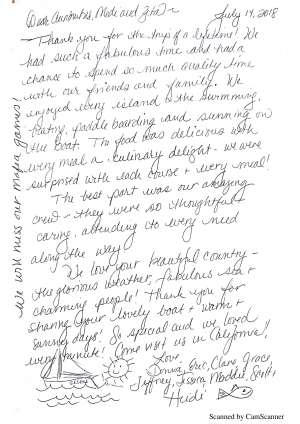 July 14, 2018
Dear Annoula, Medi and Zita ~
Thank you for the trip of a lifetime! We
had such a fabulous time and had a
chance to spend so much quality time
with our friends and family. We
enjoyed every island & the swimming,
paddle boarding and sunning on
the boat. The food was delicious with
every meal a culinary delight - we were
surprised with each course & every meal!
The best part was our amazing
crew - they were so thoughtful &
caring, attending to every need
along the way!
We love your beautiful country -
the glorious weather, fabulous sea &
charming people! Thank you for
sharing your lovely boat & warm &
sunny days! So special and we loved
every minute! Come visit us in California!
Love,
Donna, Eric, Claire, Grace,
Jeffrey, Jessica, Maddie, Scott &
Heidi
We will miss our mafia games!
Scanned by CamScanner